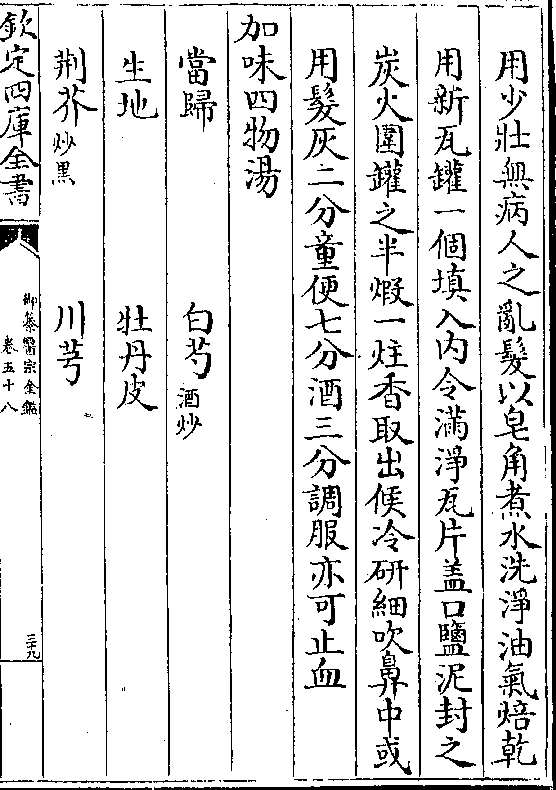 用少壯無病人之亂髮以皂角煮水洗淨油氣焙乾
用新瓦罐一個填入内令滿淨瓦片盖口鹽泥封之
炭火圍罐之半煅一炷香取出候冷研細吹鼻中或
用髮灰二分童便七分酒三分調服亦可止血
加味四物湯
當歸 白芍酒炒
生地 牡丹皮
荆芥炒黑 川芎
欽定四庫全書
御纂醫宗金鑑
卷五十八
三九